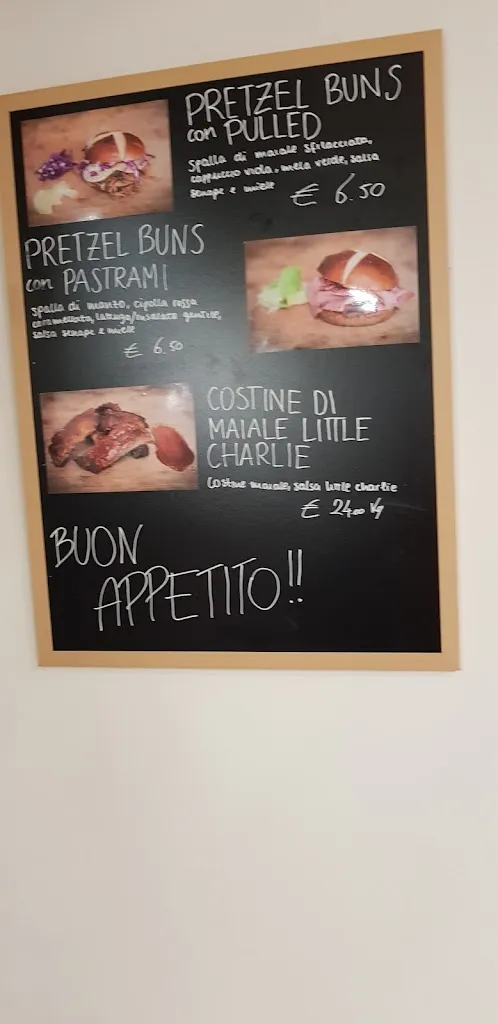 PRETZEL BUNS
con PULLED
spalla di maiale sfilacciata,
cappuccio viola, mela verde, salsa
senape e miele
€ 6.50
PRETZEL BUNS
con PASTRAMI
spalla di manzo, cipolla rossa
caramellata, lattuga/insalata gentile,
salsa senape e miele
€ 6.50
COSTINE DI
MAIALE LITTLE
CHARLIE
Costine maiale, salsa little charlie
€ 24.00
BUON
APPETITO!!